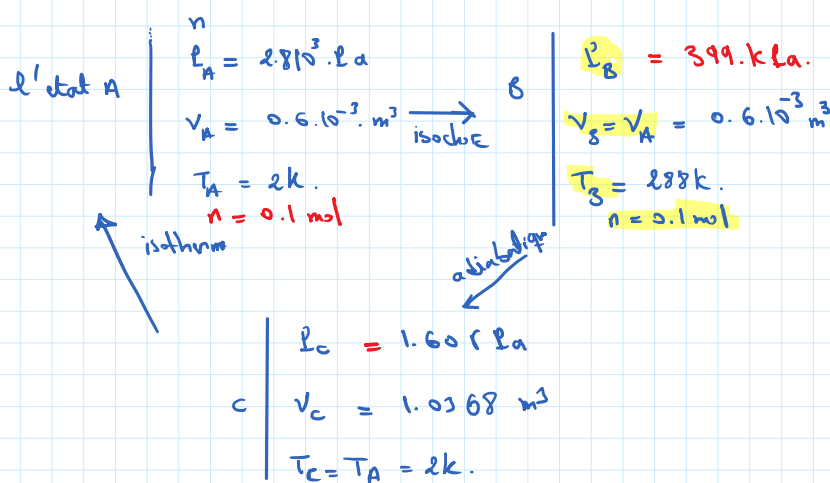 n
l'etat A
P_A = 2.8 10³.Pa
V_A = 0.6.10⁻³.m³
T_A = 2k.
n = 0.1 mol
isochoE
B
P_B = 399.kPa.
V_B = V_A = 0.6.10⁻³ m³
T_B = 288k.
n = 0.1 mol
isotherm
adiabatique
C
P_C = 1.605 Pa
V_C = 1.0368 m³
T_C = T_A = 2k.